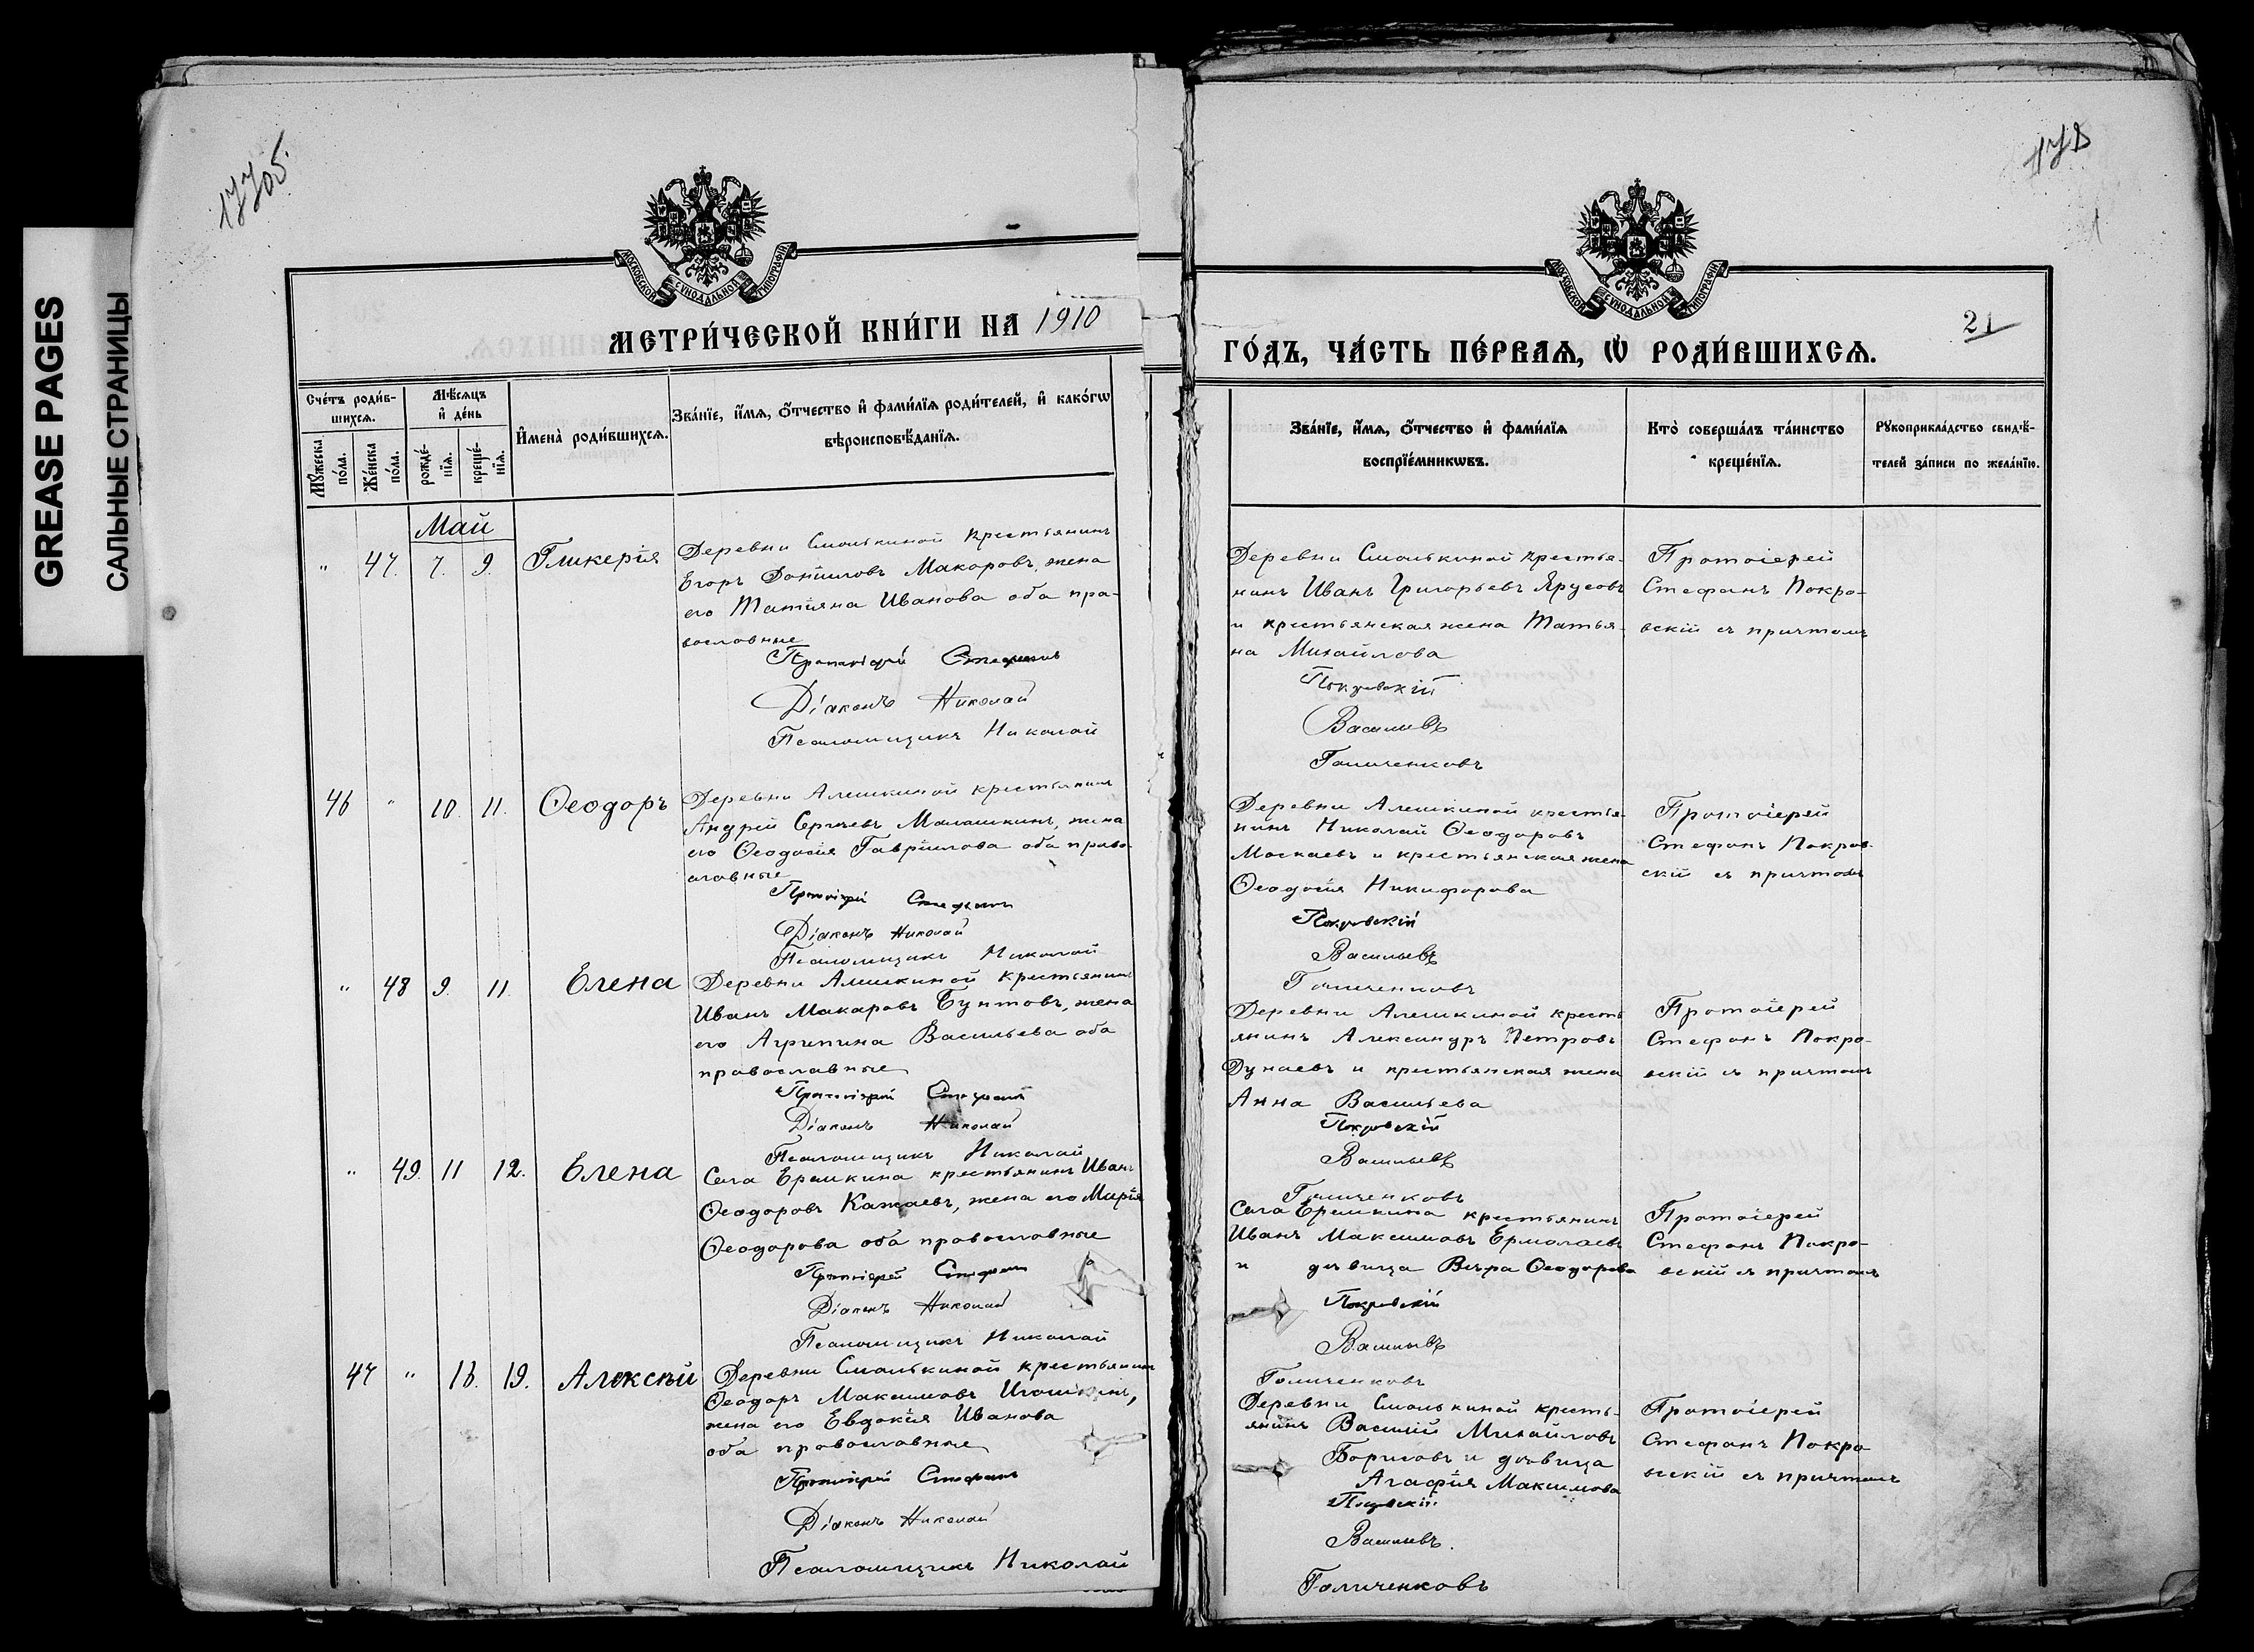 GREASE PAGES
САЛЬНЫЕ СТРАНИЦЫ
177об.
178
МОСКОВСКОЙ СѴНОДАЛЬНОЙ ТИПОГРАФІИ
МЕТРИ́ЧЕСКОЙ КНИ́ГИ НА 1910
Сче́тъ роди́в-
шихсѧ.
Мѣ́сѧцъ
и҆ де́нь
Мꙋ́жеска
по́ла.
Же́нска
по́ла.
рожде́-
нїѧ.
креще́-
нїѧ.
И҆мена̀ роди́вшихсѧ.
Зва́нїе, и҆́мѧ, ѻ҆́тчество и҆ фами́лїѧ роди́телей, и҆ како́гѡ
вѣроисповѣ́данїѧ.
Май
" 47. 7. 9. Гликерія
Деревни Смолькиной крестьянинъ
Егоръ Даніиловъ Макаровъ, жена
его Татіяна Иванова оба пра-
вославные
Протоіерей Стефанъ
Діаконъ Николай
Псаломщикъ Николай
46 " 10. 11. Ѳеодоръ
Деревни Алешкиной крестьянинъ
Андрей Сергеевъ Малашкинъ, жена
его Ѳеодосія Гавріилова оба право-
славные
Протоіерей Стефанъ
Діаконъ Николай
Псаломщикъ Николай
" 48 9. 11. Елена
Деревни Алешкиной крестьянинъ
Иванъ Макаровъ Бунтовъ, жена
его Агрипина Васильева оба
православные
Протоіерей Стефанъ
Діаконъ Николай
Псаломщикъ Николай
" 49. 11 12. Елена
Села Ерешкина крестьянинъ Иванъ
Ѳеодоровъ Кажаевъ, жена его Марія
Ѳеодорова оба православные
Протоіерей Стефанъ
Діаконъ Николай
Псаломщикъ Николай
47 " 18. 19. Алексѣй
Деревни Смолькиной крестьянинъ
Ѳеодоръ Максимовъ Игошкинъ,
жена его Евдокія Иванова
оба православные
Протоіерей Стефанъ
Діаконъ Николай
Псаломщикъ Николай
МОСКОВСКОЙ СѴНОДАЛЬНОЙ ТИПОГРАФІИ
21
ГО́ДЪ, ЧА́СТЬ ПЕ́РВАѦ, Ѡ҆ РОДИ́ВШИХСѦ.
Зва́нїе, и҆́мѧ, ѻ҆́тчество и҆ фами́лїѧ
воспрїе́мникѡвъ.
Кто̀ соверша́лъ та́инство
креще́нїѧ.
Рꙋкоприкла́дство свидѣ́-
телей за́писи по жела́нїю.
Деревни Смолькиной крестья-
нинъ Иванъ Григорьевъ Ярусовъ
и крестьянская жена Татья-
на Михайлова
Покровскій
Васильевъ
Голиченковъ
Протоіерей
Стефанъ Покро-
вскій съ причтомъ
Деревни Алешкиной крестья-
нинъ Николай Ѳеодоровъ
Москаевъ и крестьянская жена
Ѳеодосія Никифорова
Покровскій
Васильевъ
Голиченковъ
Протоіерей
Стефанъ Покров-
скій съ причтомъ
Деревни Алешкиной кресть
янинъ Александръ Петровъ
Дунаевъ и крестьянская жена
Анна Васильева
Покровскій
Васильевъ
Голиченковъ
Протоіерей
Стефанъ Покро-
вскій съ причтомъ
Села Ерешкина крестьянинъ
Иванъ Максимовъ Ермолаевъ
и дѣвица Вѣра Ѳеодорова
Покровскій
Васильевъ
Голиченковъ
Протоіерей
Стефанъ Покро-
вскій съ причтомъ
Деревни Смолькиной кресть-
янинъ Василій Михайловъ
Борисовъ и дѣвица
Агафія Максимова
Покровскій
Васильевъ.
Голиченковъ
Протоіерей
Стефанъ Покро
вскій съ причтомъ